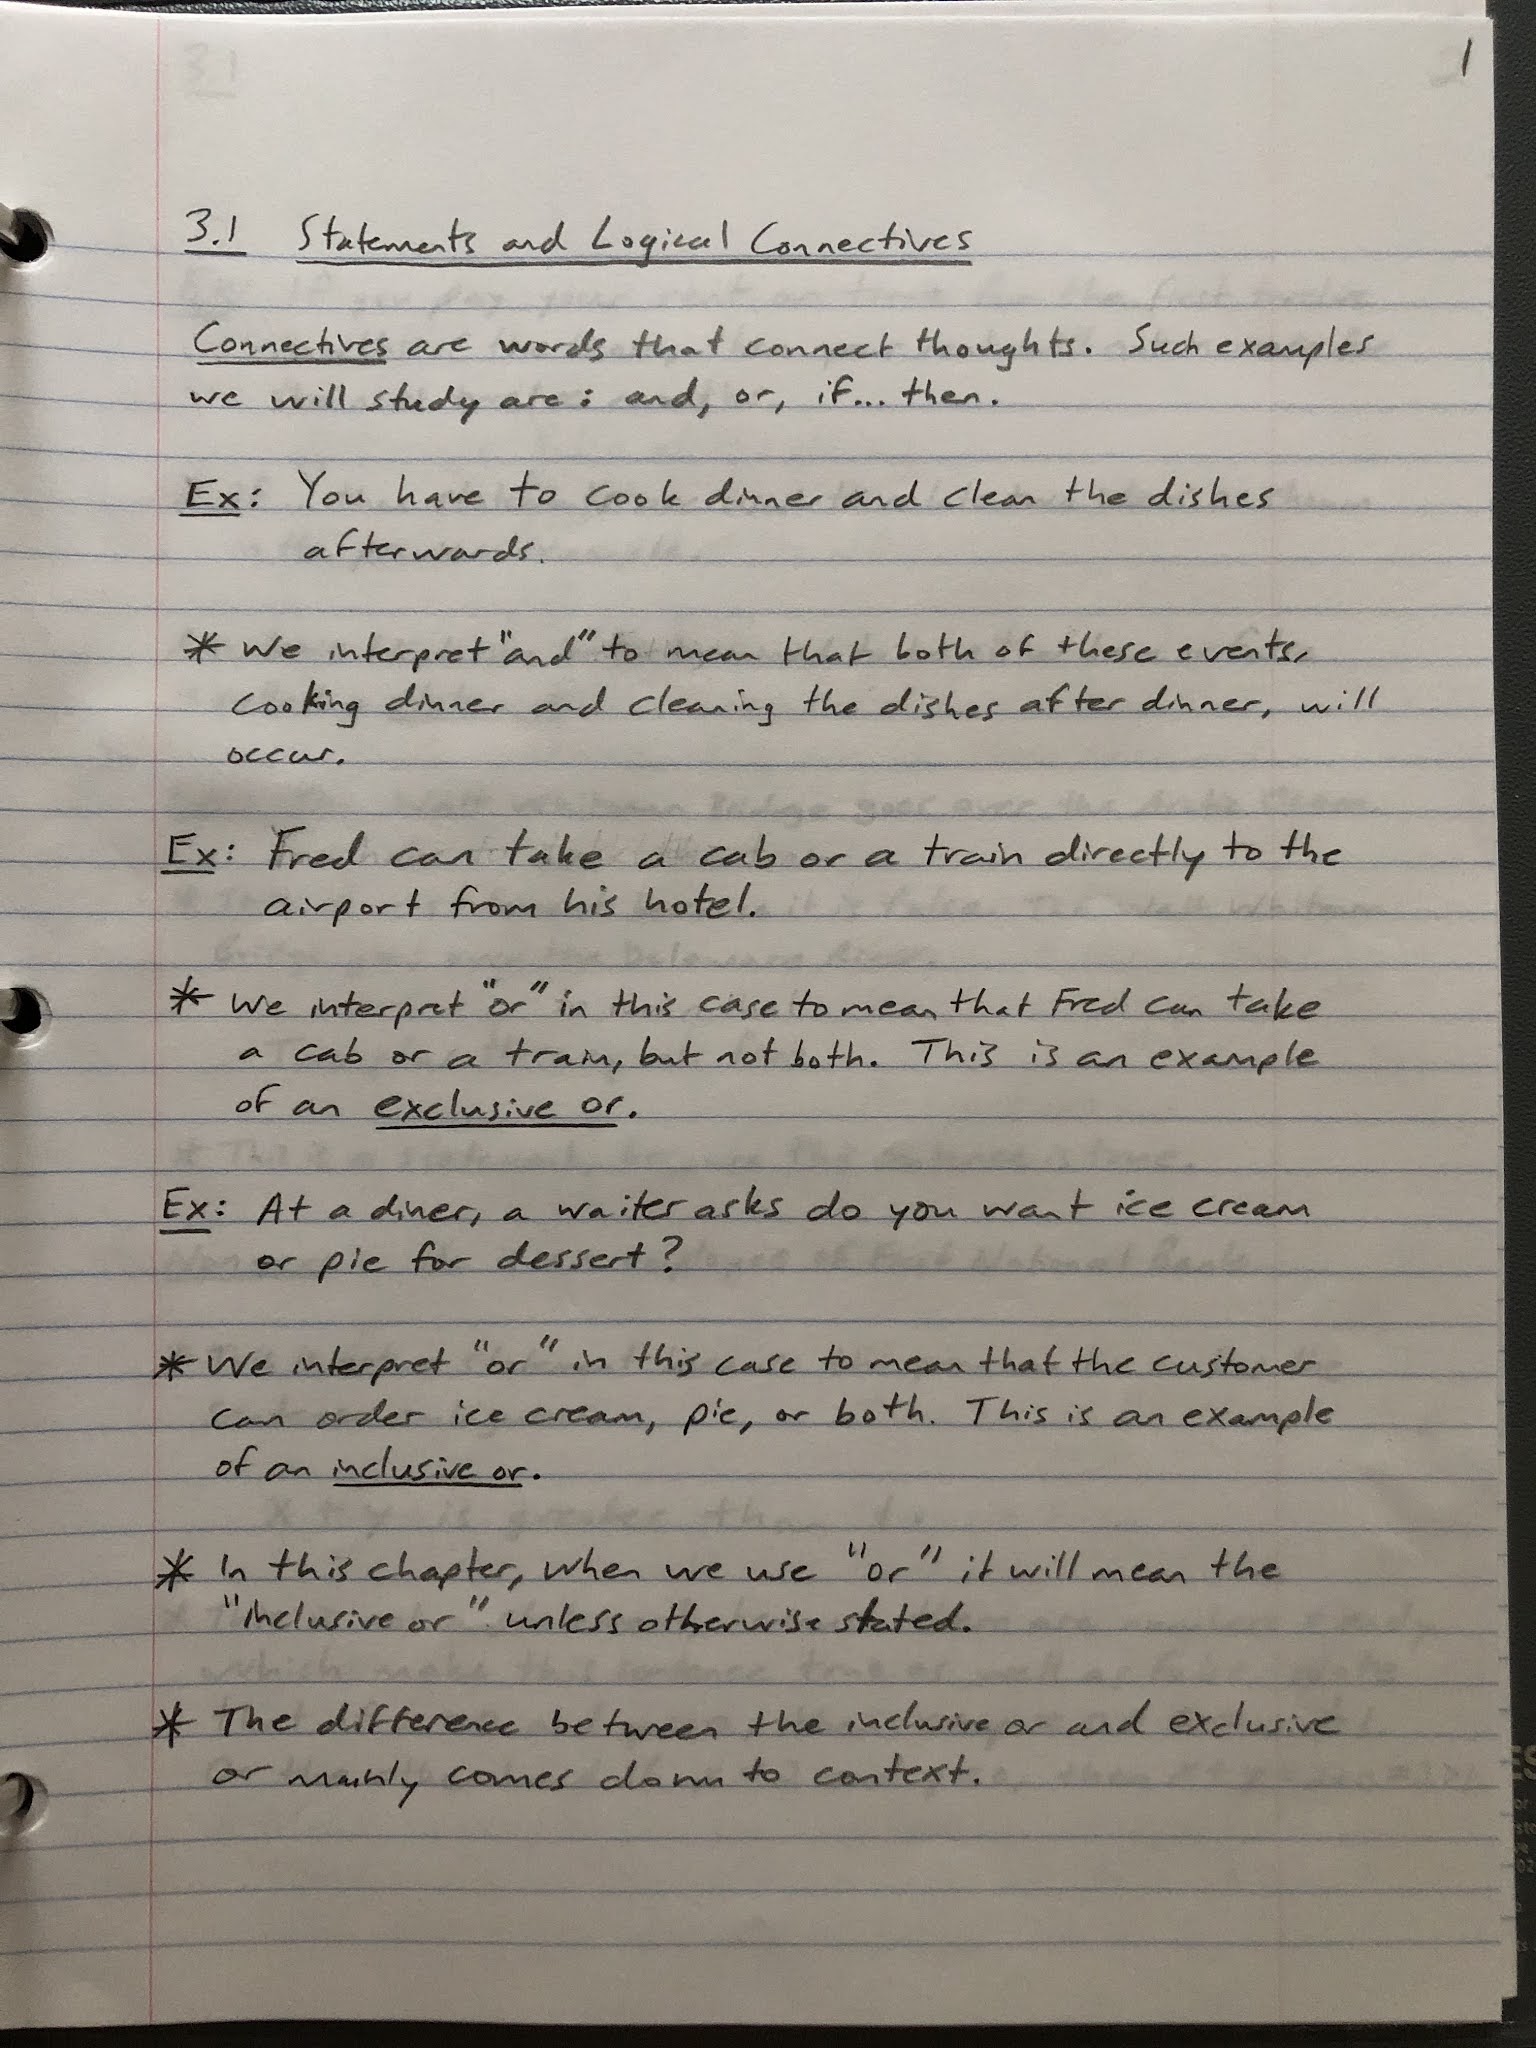 1
3.1 Statements and Logical Connectives
Connectives are words that connect thoughts. Such examples
we will study are: and, or, if... then.
Ex: You have to cook dinner and clean the dishes
afterwards.
* We interpret "and" to mean that both of these events,
cooking dinner and cleaning the dishes after dinner, will
occur.
Ex: Fred can take a cab or a train directly to the
airport from his hotel.
* We interpret "or" in this case to mean that Fred can take
a cab or a train, but not both. This is an example
of an exclusive or.
Ex: At a diner, a waiter asks do you want ice cream
or pie for dessert?
* We interpret "or" in this case to mean that the customer
can order ice cream, pie, or both. This is an example
of an inclusive or.
* In this chapter, when we use "or" it will mean the
"inclusive or" unless otherwise stated.
* The difference between the inclusive or and exclusive
or mainly comes down to context.